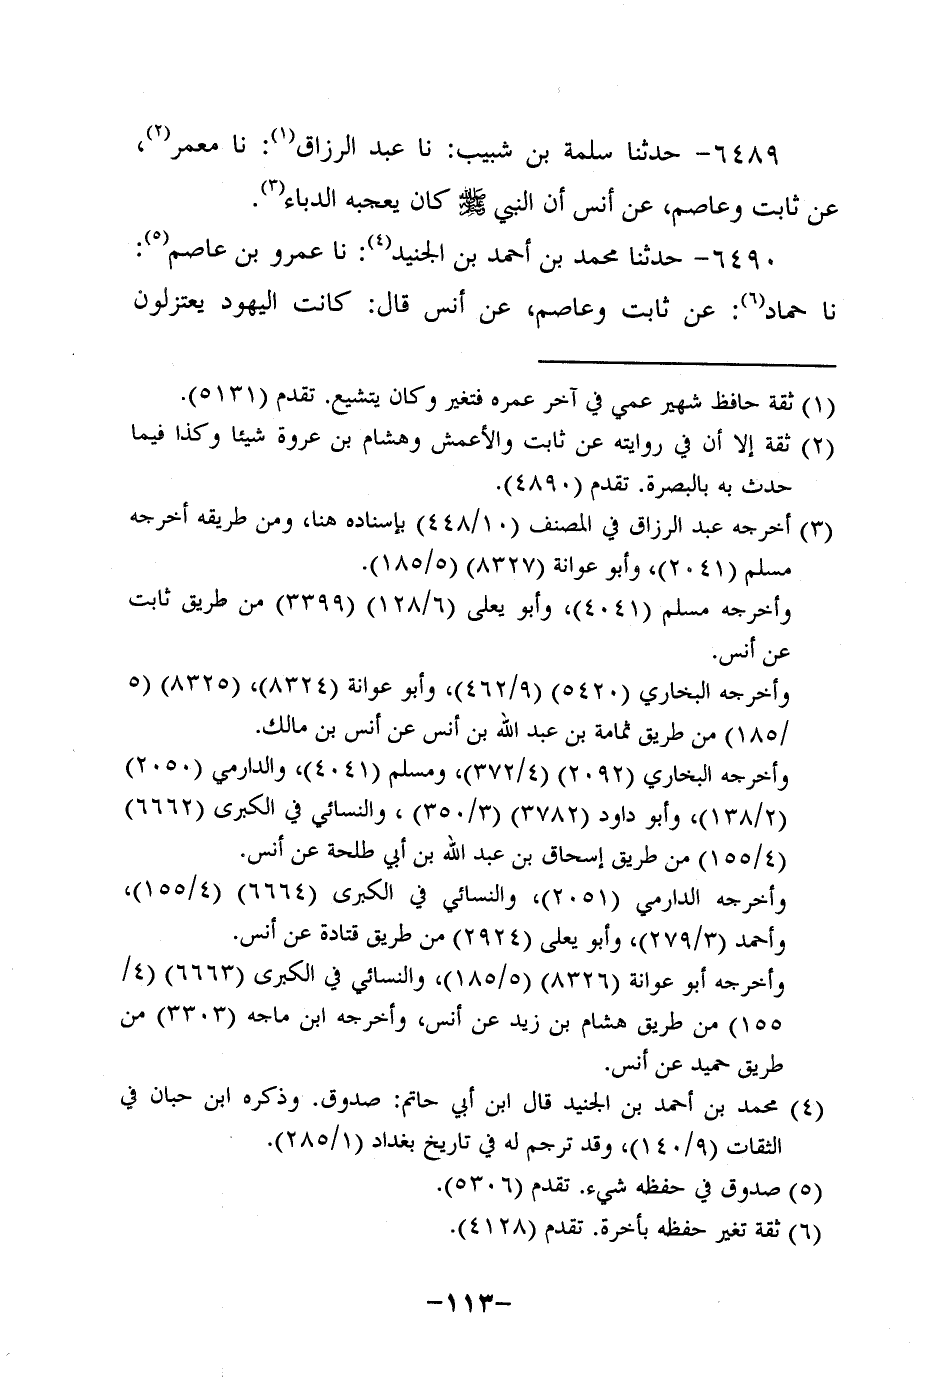 ٦٤٨٩- حدثنا سلمة بن شبيب: نا عبد الرزاق(١): نا معمر(٢)،
عن ثابت وعاصم، عن أنس أن النبي ﷺ كان يعجبه الدباء(٣).
٦٤٩٠- حدثنا محمد بن أحمد بن الجنيد(٤): نا عمرو بن عاصم(٥):
نا حماد(٦): عن ثابت وعاصم، عن أنس قال: كانت اليهود يعتزلون
(١) ثقة حافظ شهير عمي في آخر عمره فتغير وكان يتشيع. تقدم (٥١٣١).
(٢) ثقة إلا أن في روايته عن ثابت والأعمش وهشام بن عروة شيئا وكذا فيما
حدث به بالبصرة. تقدم (٤٨٩٠).
(٣) أخرجه عبد الرزاق في المصنف (٤٤٨/١٠) بإسناده هنا، ومن طريقه أخرجه
مسلم (٢٠٤١)، وأبو عوانة (٨٣٢٧) (١٨٥/٥).
وأخرجه مسلم (٤٠٤١)، وأبو يعلى (١٢٨/٦) (٣٣٩٩) من طريق ثابت
عن أنس.
وأخرجه البخاري (٥٤٢٠) (٤٦٢/٩)، وأبو عوانة (٨٣٢٤)، (٨٣٢٥) (٥
/١٨٥) من طريق ثمامة بن عبد الله بن أنس عن أنس بن مالك.
وأخرجه البخاري (٢٠٩٢) (٣٧٢/٤)، ومسلم (٤٠٤١)، والدارمي (٢٠٥٠)
(١٣٨/٢)، وأبو داود (٣٧٨٢) (٣٥٠/٣) ، والنسائي في الكبرى (٦٦٦٢)
(١٥٥/٤) من طريق إسحاق بن عبد الله بن أبي طلحة عن أنس.
وأخرجه الدارمي (٢٠٥١)، والنسائي في الكبرى (٦٦٦٤) (١٥٥/٤)،
وأحمد (٢٧٩/٣)، وأبو يعلى (٢٩٢٤) من طريق قتادة عن أنس.
وأخرجه أبو عوانة (٨٣٢٦) (١٨٥/٥)، والنسائي في الكبرى (٦٦٦٣) (٤/
١٥٥) من طريق هشام بن زيد عن أنس، وأخرجه ابن ماجه (٣٣٠٣) من
طريق حميد عن أنس.
(٤) محمد بن أحمد بن الجنيد قال ابن أبي حاتم: صدوق. وذكره ابن حبان في
الثقات (١٤٠/٩)، وقد ترجم له في تاريخ بغداد (٢٨٥/١).
(٥) صدوق في حفظه شيء. تقدم (٥٣٠٦).
(٦) ثقة تغير حفظه بأخرة. تقدم (٤١٢٨).
-١١٣-